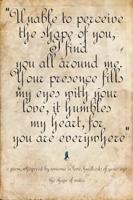 "Unable to perceive
the shape of you,
I find
you all around me.
Your presence fills
my eyes with your
love, it humbles
my heart, for
you are everywhere"
a poem, whispered by someone in love, hundreds of years ago
the shape of water